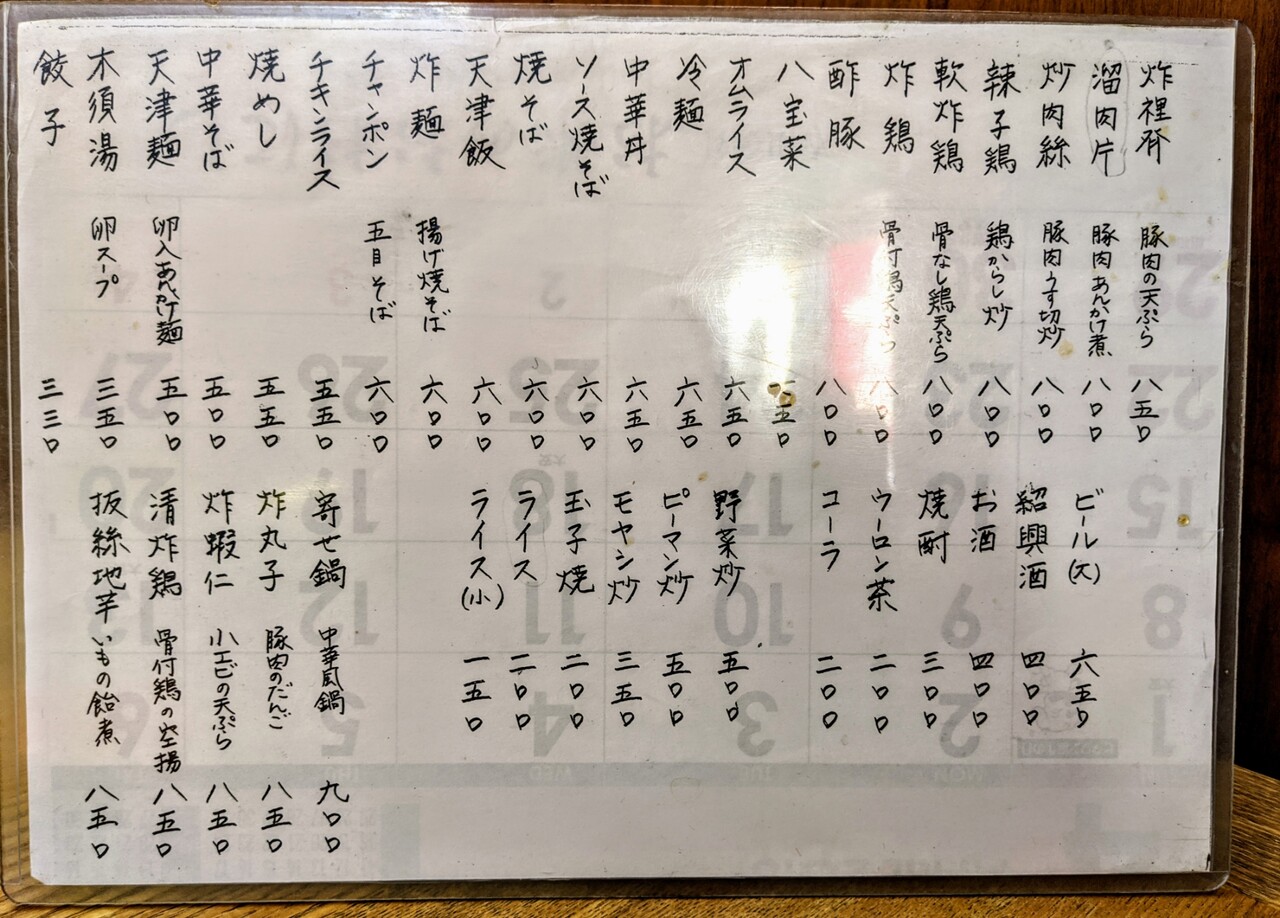 炸裡脊 豚肉の天ぷら 八五〇
溜肉片 豚肉あんかけ煮 八〇〇
炒肉絲 豚肉うす切炒 八〇〇
辣子鶏 鶏からし炒 八〇〇
軟炸鶏 骨なし鶏天ぷら 八〇〇
炸鶏 骨付鶏天ぷら 八〇〇
酢豚 八〇〇
八宝菜 五〇
オムライス 六五〇
冷麺 六五〇
中華丼 六五〇
ソース焼そば 六〇〇
焼そば 六〇〇
天津飯 六〇〇
炸麺 揚げ焼そば 六〇〇
チャンポン 五目そば 六〇〇
チキンライス 五五〇
焼めし 五五〇
中華そば 五〇〇
天津麺 卵入あんかけ麺 五〇〇
木須湯 卵スープ 三五〇
餃子 三三〇
ビール(大) 六五〇
紹興酒 四〇〇
お酒 四〇〇
焼酎 三〇〇
ウーロン茶 二〇〇
コーラ 二〇〇
野菜炒 五〇〇
ピーマン炒 五〇〇
モヤシ炒 三五〇
玉子焼 二〇〇
ライス 二〇〇
ライス(小) 一五〇
寄せ鍋 中華風鍋 九〇〇
炸丸子 豚肉のだんご 八五〇
炸蝦仁 小エビの天ぷら 八五〇
清炸鶏 骨付鶏の空揚 八五〇
抜絲地芋 いもの飴煮 八五〇